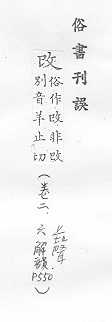 俗書刊誤
改俗作攺非攺
別音羊止切
(卷二、上聲
六解韻
P550)